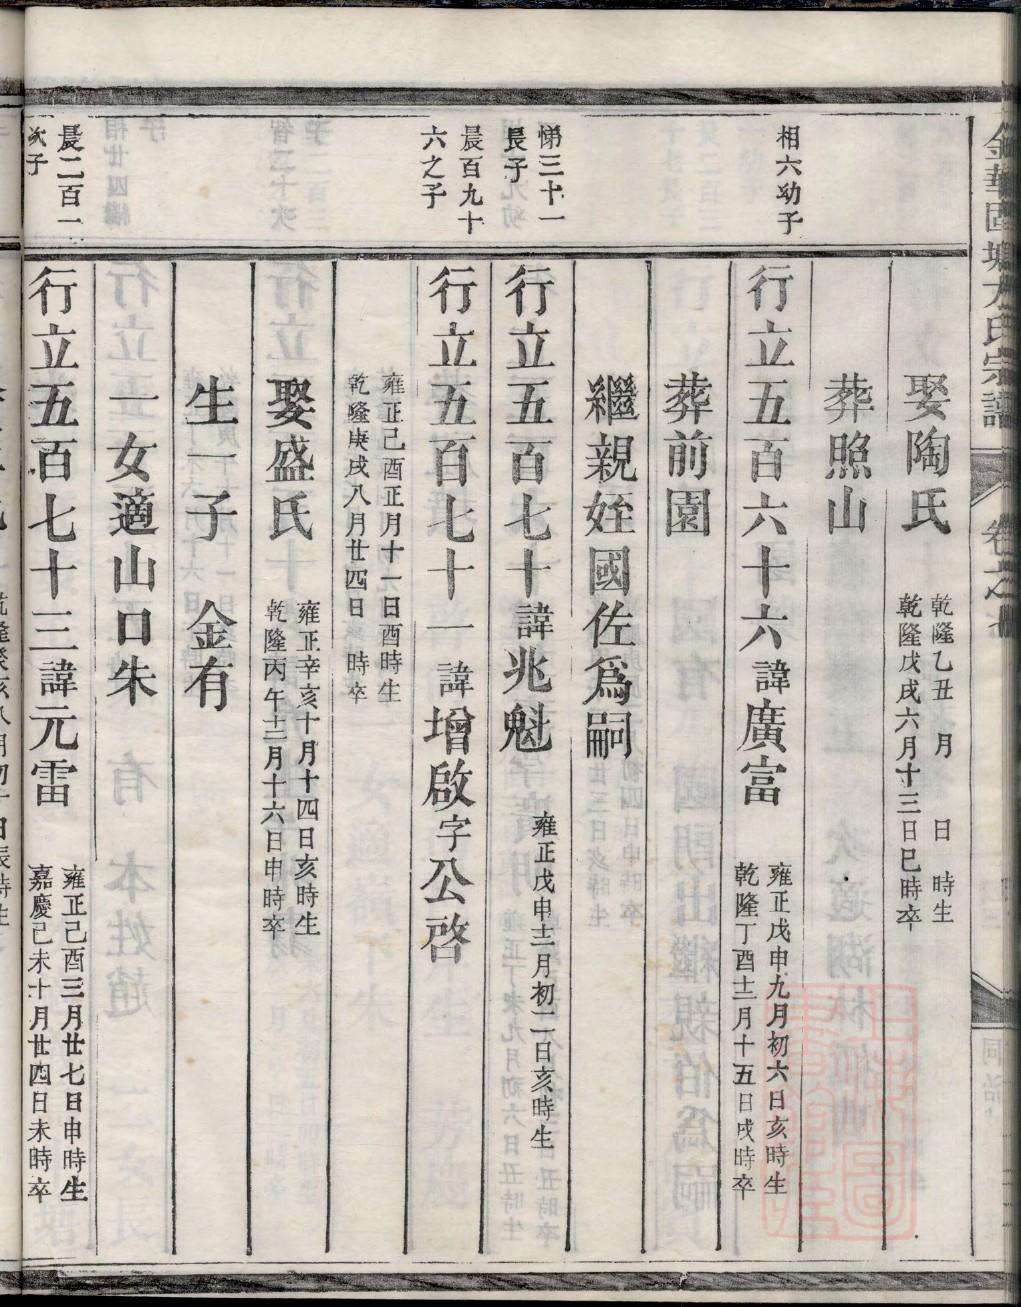 娶陶氏
乾隆乙丑 月 日 時生
乾隆戊戌六月十三日巳時卒
葬照山
相六幼子
行立五百六十六諱廣富
雍正戊申九月初六日亥時生
乾隆丁酉十二月十五日戌時卒
葬前園
繼親姪國佐爲嗣
悌三十一
長子
行立五百七十諱兆魁
雍正戊申十二月初二日亥時生
晨百九十
六之子
行立五百七十一諱增啟字公啓
雍正己酉正月十一日酉時生
乾隆庚戌八月廿四日 時卒
娶盛氏
雍正辛亥十月十四日亥時生
乾隆丙午十二月十六日申時卒
生一子 金有
一女適山口朱
晨二百一
次子
行立五百七十三諱元雷
雍正己酉三月廿七日申時生
嘉慶己未十月廿四日未時卒